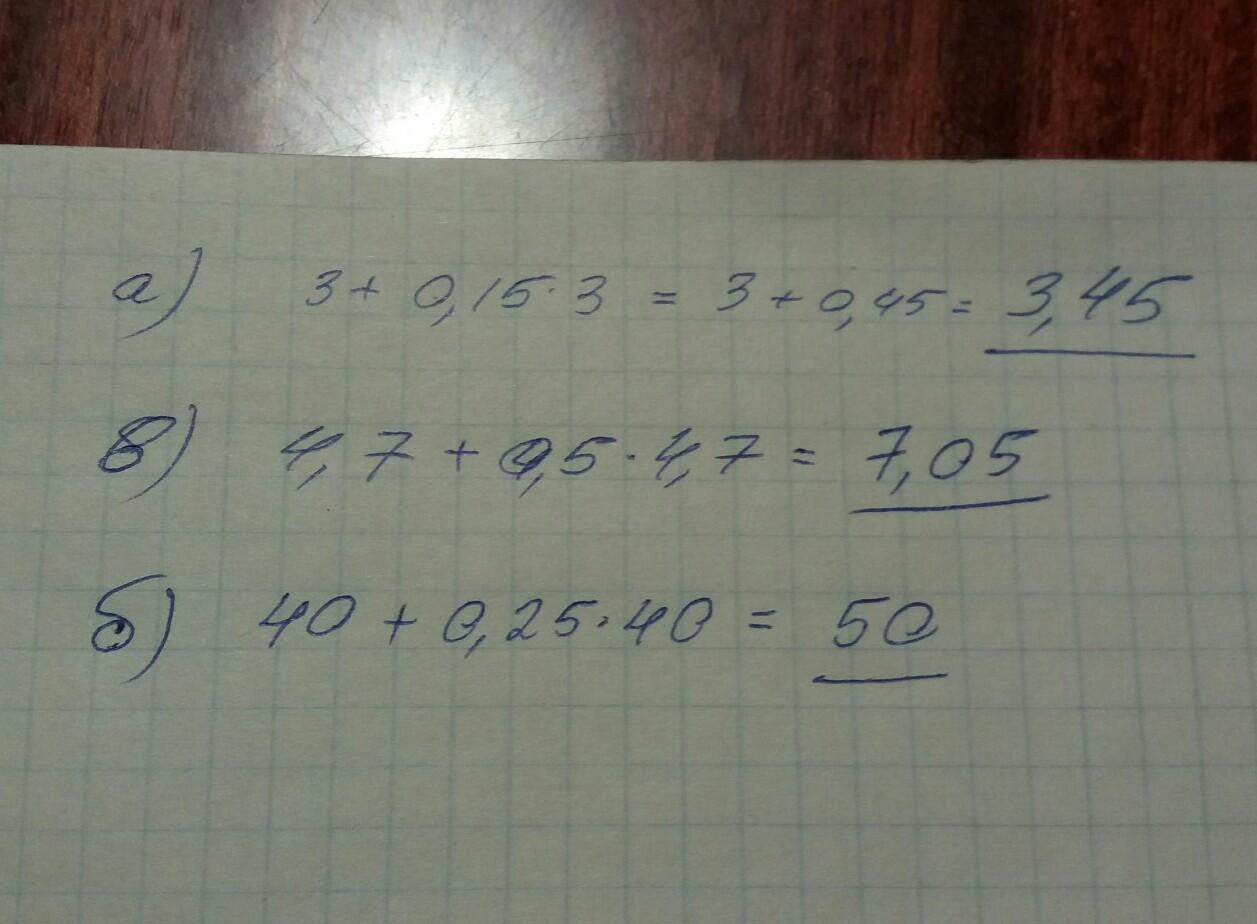 а) 3 + 0,15 · 3 = 3 + 0,45 = 3,45
в) 4,7 + 0,5 · 4,7 = 7,05
б) 40 + 0,25 · 40 = 50